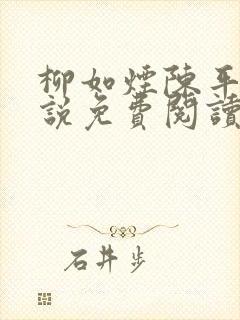 柳如煙陳平
說免費閱讀
石井步